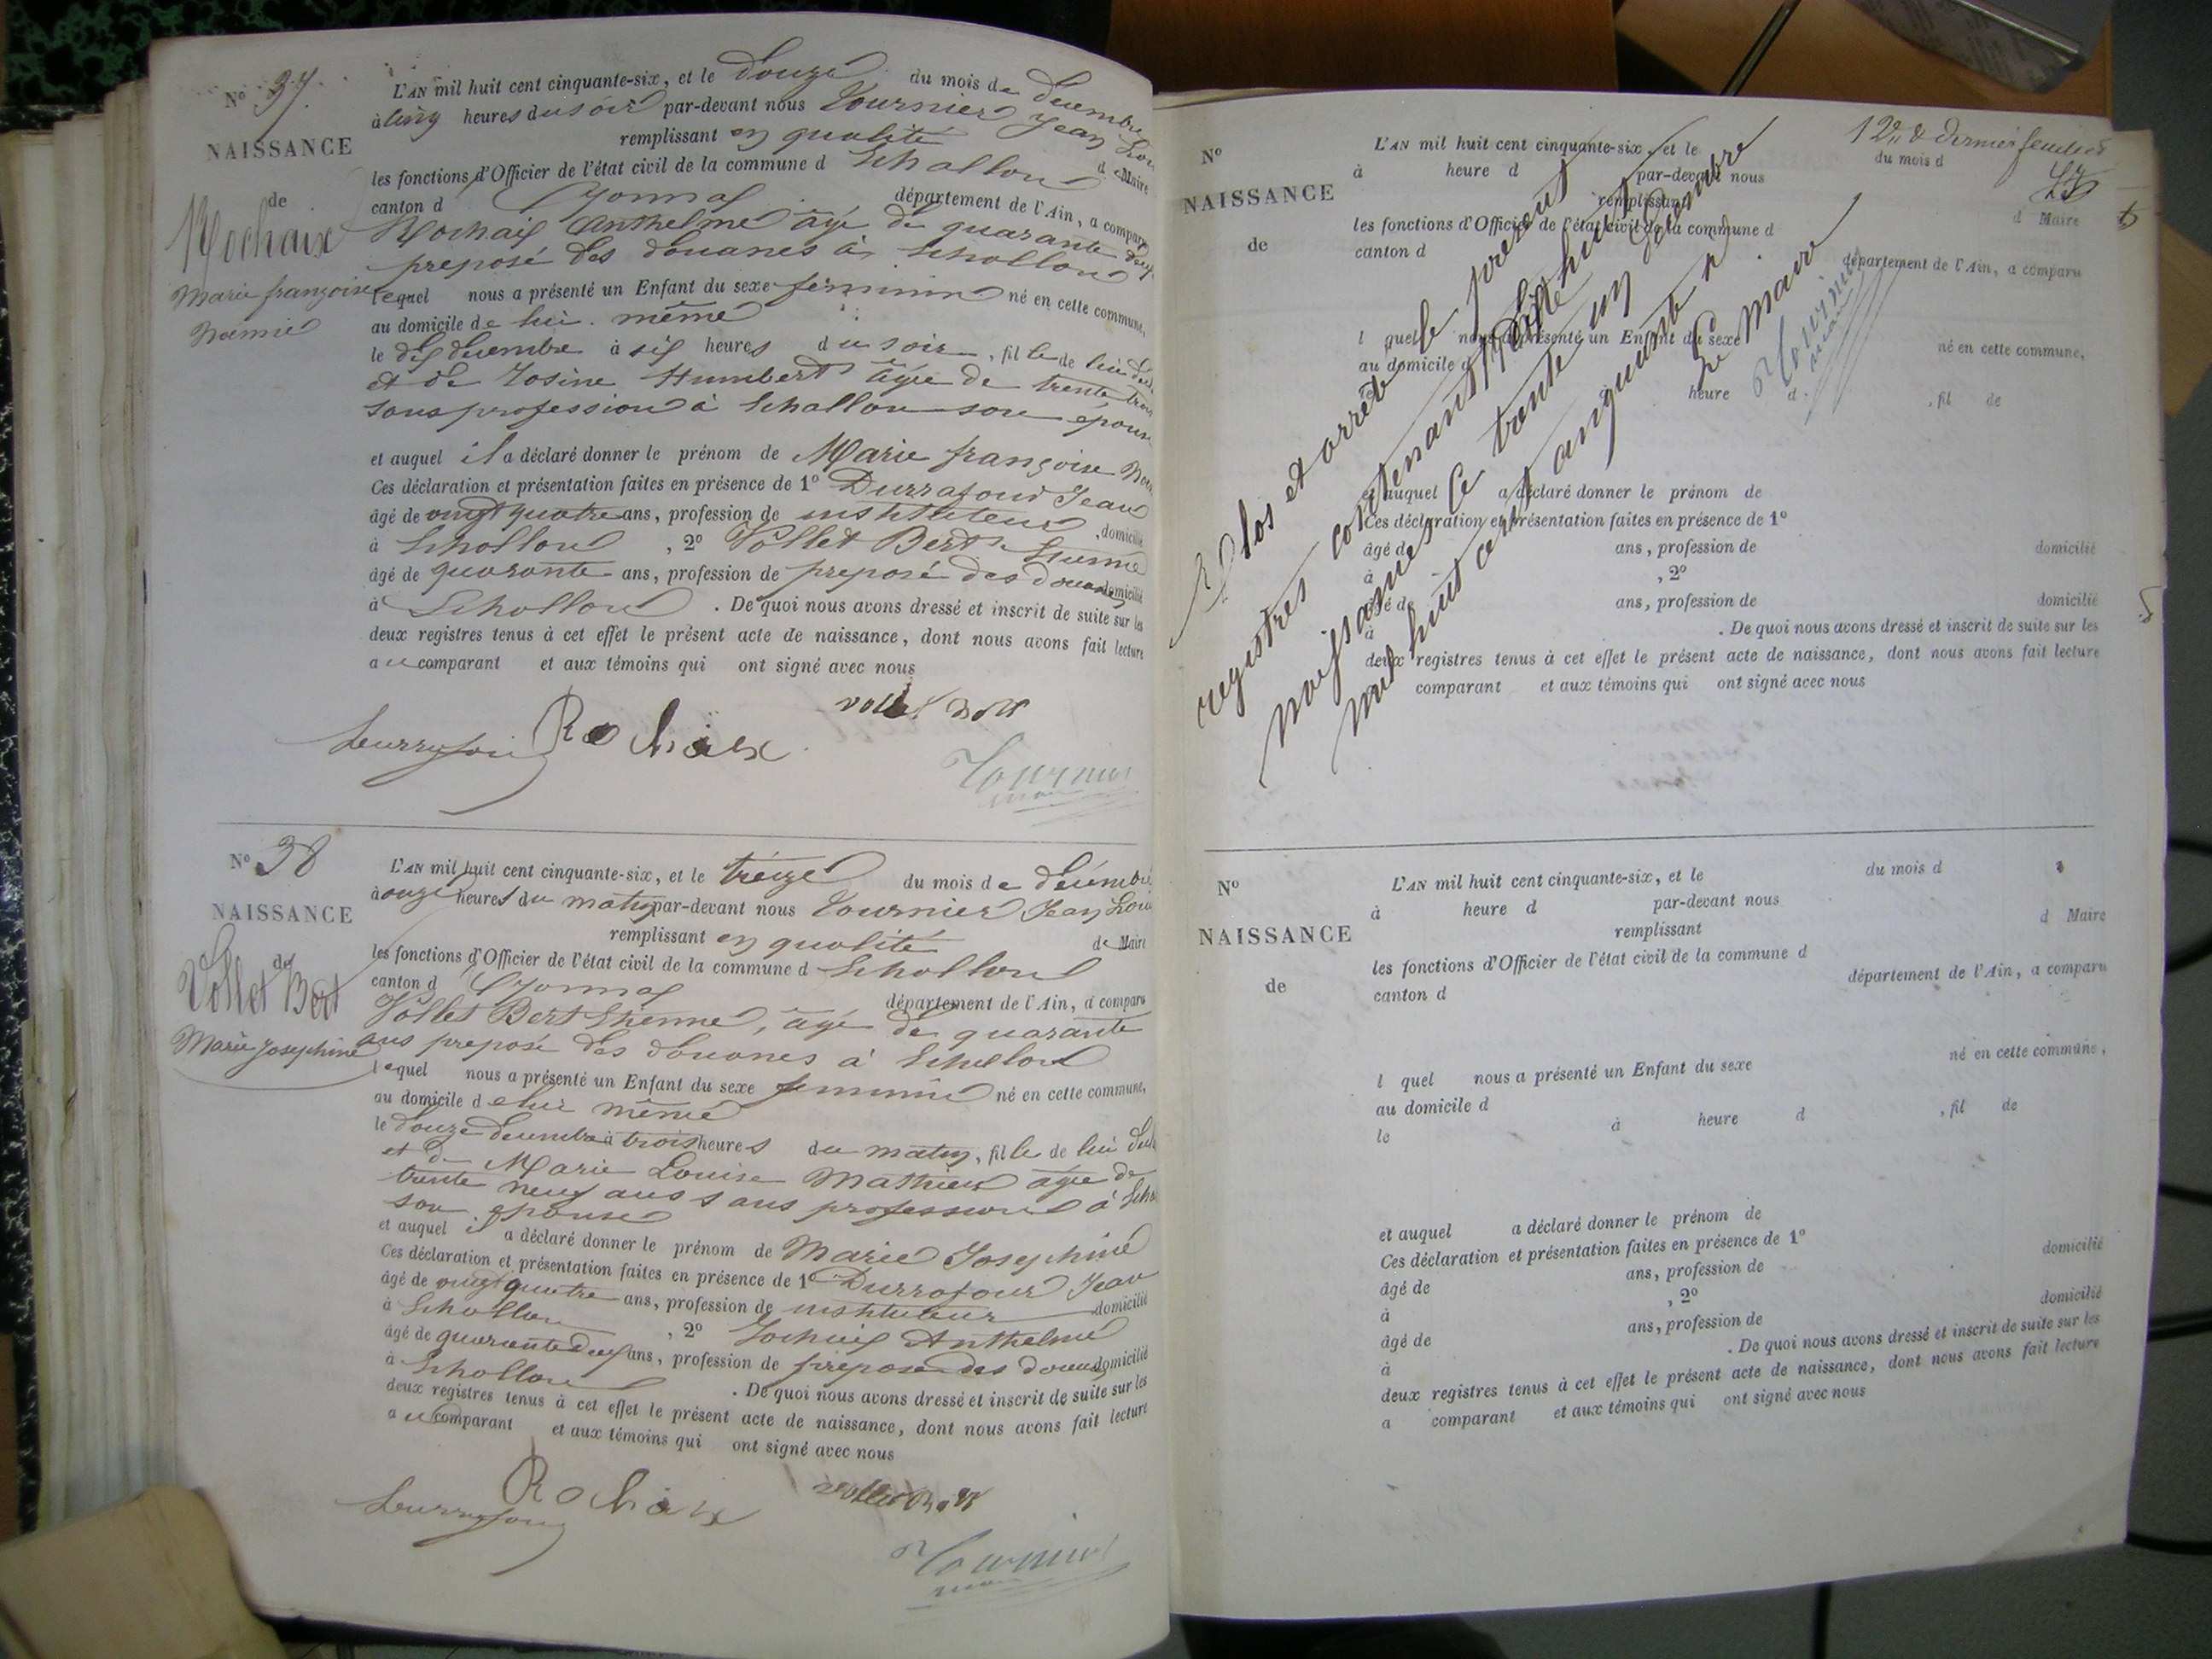 N° 37
NAISSANCE
de
Rochaix
Marie françoise
Noémie
L'AN mil huit cent cinquante-six, et le douze du mois de décembre
à cinq heures du soir par-devant nous Tournier Jean Lou
remplissant en qualité d Maire
les fonctions d'Officier de l'état civil de la commune d Echallon
canton d Oyonnax département de l'Ain, a comparu
Rochaix Anthelme âgé de quarante deux
preposé des douanes à Echallon
lequel nous a présenté un Enfant du sexe feminin né en cette commune,
au domicile de lui même
le dix décembre à six heures du soir, fille de lui dit
et de Josine Humbert âgée de trente trois
sans profession à Echallon son épouse
et auquel il a déclaré donner le prénom de Marie françoise Noé
Ces déclaration et présentation faites en présence de 1° Durrafour Jean
âgé de vingt quatre ans, profession de instituteur domicilié
à Echallon, 2° Vollet Bert Etienne
âgé de quarante ans, profession de preposé des douanes domicilié
à Echallon. De quoi nous avons dressé et inscrit de suite sur les
deux registres tenus à cet effet le présent acte de naissance, dont nous avons fait lecture
au comparant et aux témoins qui ont signé avec nous
vollet Bert
Durrafour Rochaix
Tournier
maire
N° 38
NAISSANCE
de
Vollet Bert
Marie Josephine
L'AN mil huit cent cinquante-six, et le treize du mois de décembre
à onze heures du matin par-devant nous Tournier Jean Lou
remplissant en qualité de Maire
les fonctions d'Officier de l'état civil de la commune d Echallon
canton d Oyonnax département de l'Ain, a comparu
Vollet Bert Etienne, âgé de quarante
ans preposé des douanes à Echallon
lequel nous a présenté un Enfant du sexe feminin né en cette commune,
au domicile de lui même
le douze décembre à trois heures du matin, fille de lui dit
et de Marie Louise Mathieu âgée de
trente neuf ans sans profession à Echa
son épouse
et auquel il a déclaré donner le prénom de Marie Josephine
Ces déclaration et présentation faites en présence de 1° Durrafour Jean
âgé de vingt quatre ans, profession de instituteur domicilié
à Echallon, 2° Rochaix Anthelme
âgé de quarante deux ans, profession de preposé des douanes domicilié
à Echallon. De quoi nous avons dressé et inscrit de suite sur les
deux registres tenus à cet effet le présent acte de naissance, dont nous avons fait lecture
au comparant et aux témoins qui ont signé avec nous
Rochaix vollet Bert
Durrafour
Tournier
maire
12e & dernier feuillet
N°
NAISSANCE
de
L'AN mil huit cent cinquante-six, et le du mois d
à heure d par-devant nous
remplissant d Maire
les fonctions d'Officier de l'état civil de la commune d
canton d département de l'Ain, a comparu
l quel nous a présenté un Enfant du sexe né en cette commune,
au domicile d
le à heure d , fil de
et auquel a déclaré donner le prénom de
Ces déclaration et présentation faites en présence de 1°
âgé de ans, profession de domicilié
à , 2°
âgé de ans, profession de domicilié
à . De quoi nous avons dressé et inscrit de suite sur les
deux registres tenus à cet effet le présent acte de naissance, dont nous avons fait lecture
comparant et aux témoins qui ont signé avec nous
Clos et arrêté le présent
registres contenant trente huit
naissances ce trente un décembre
mil huit cent cinquante six
Le Maire
Tournier
maire
N°
NAISSANCE
de
L'AN mil huit cent cinquante-six, et le du mois d
à heure d par-devant nous
remplissant d Maire
les fonctions d'Officier de l'état civil de la commune d
canton d département de l'Ain, a comparu
l quel nous a présenté un Enfant du sexe né en cette commune,
au domicile d
le à heure d , fil de
et auquel a déclaré donner le prénom de
Ces déclaration et présentation faites en présence de 1°
âgé de ans, profession de domicilié
à , 2°
âgé de ans, profession de domicilié
à . De quoi nous avons dressé et inscrit de suite sur les
deux registres tenus à cet effet le présent acte de naissance, dont nous avons fait lecture
a comparant et aux témoins qui ont signé avec nous